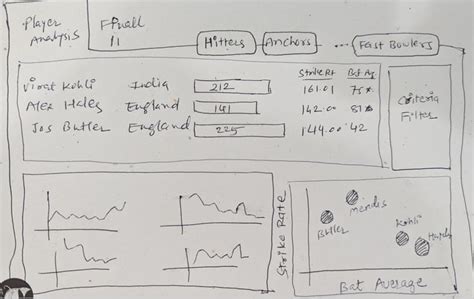 Player Analysis
Final 11
Hitters Anchors ... Fast Bowlers
Strike Rt Bat Ag
Virat Kohli India 212 161.01 75*
Alex Hales England 141 142.00 81*
Jos Butler England 225 144.00 42
Criteria Filter
Strike Rate
Mendis
Butler
Kohli
Bat Average